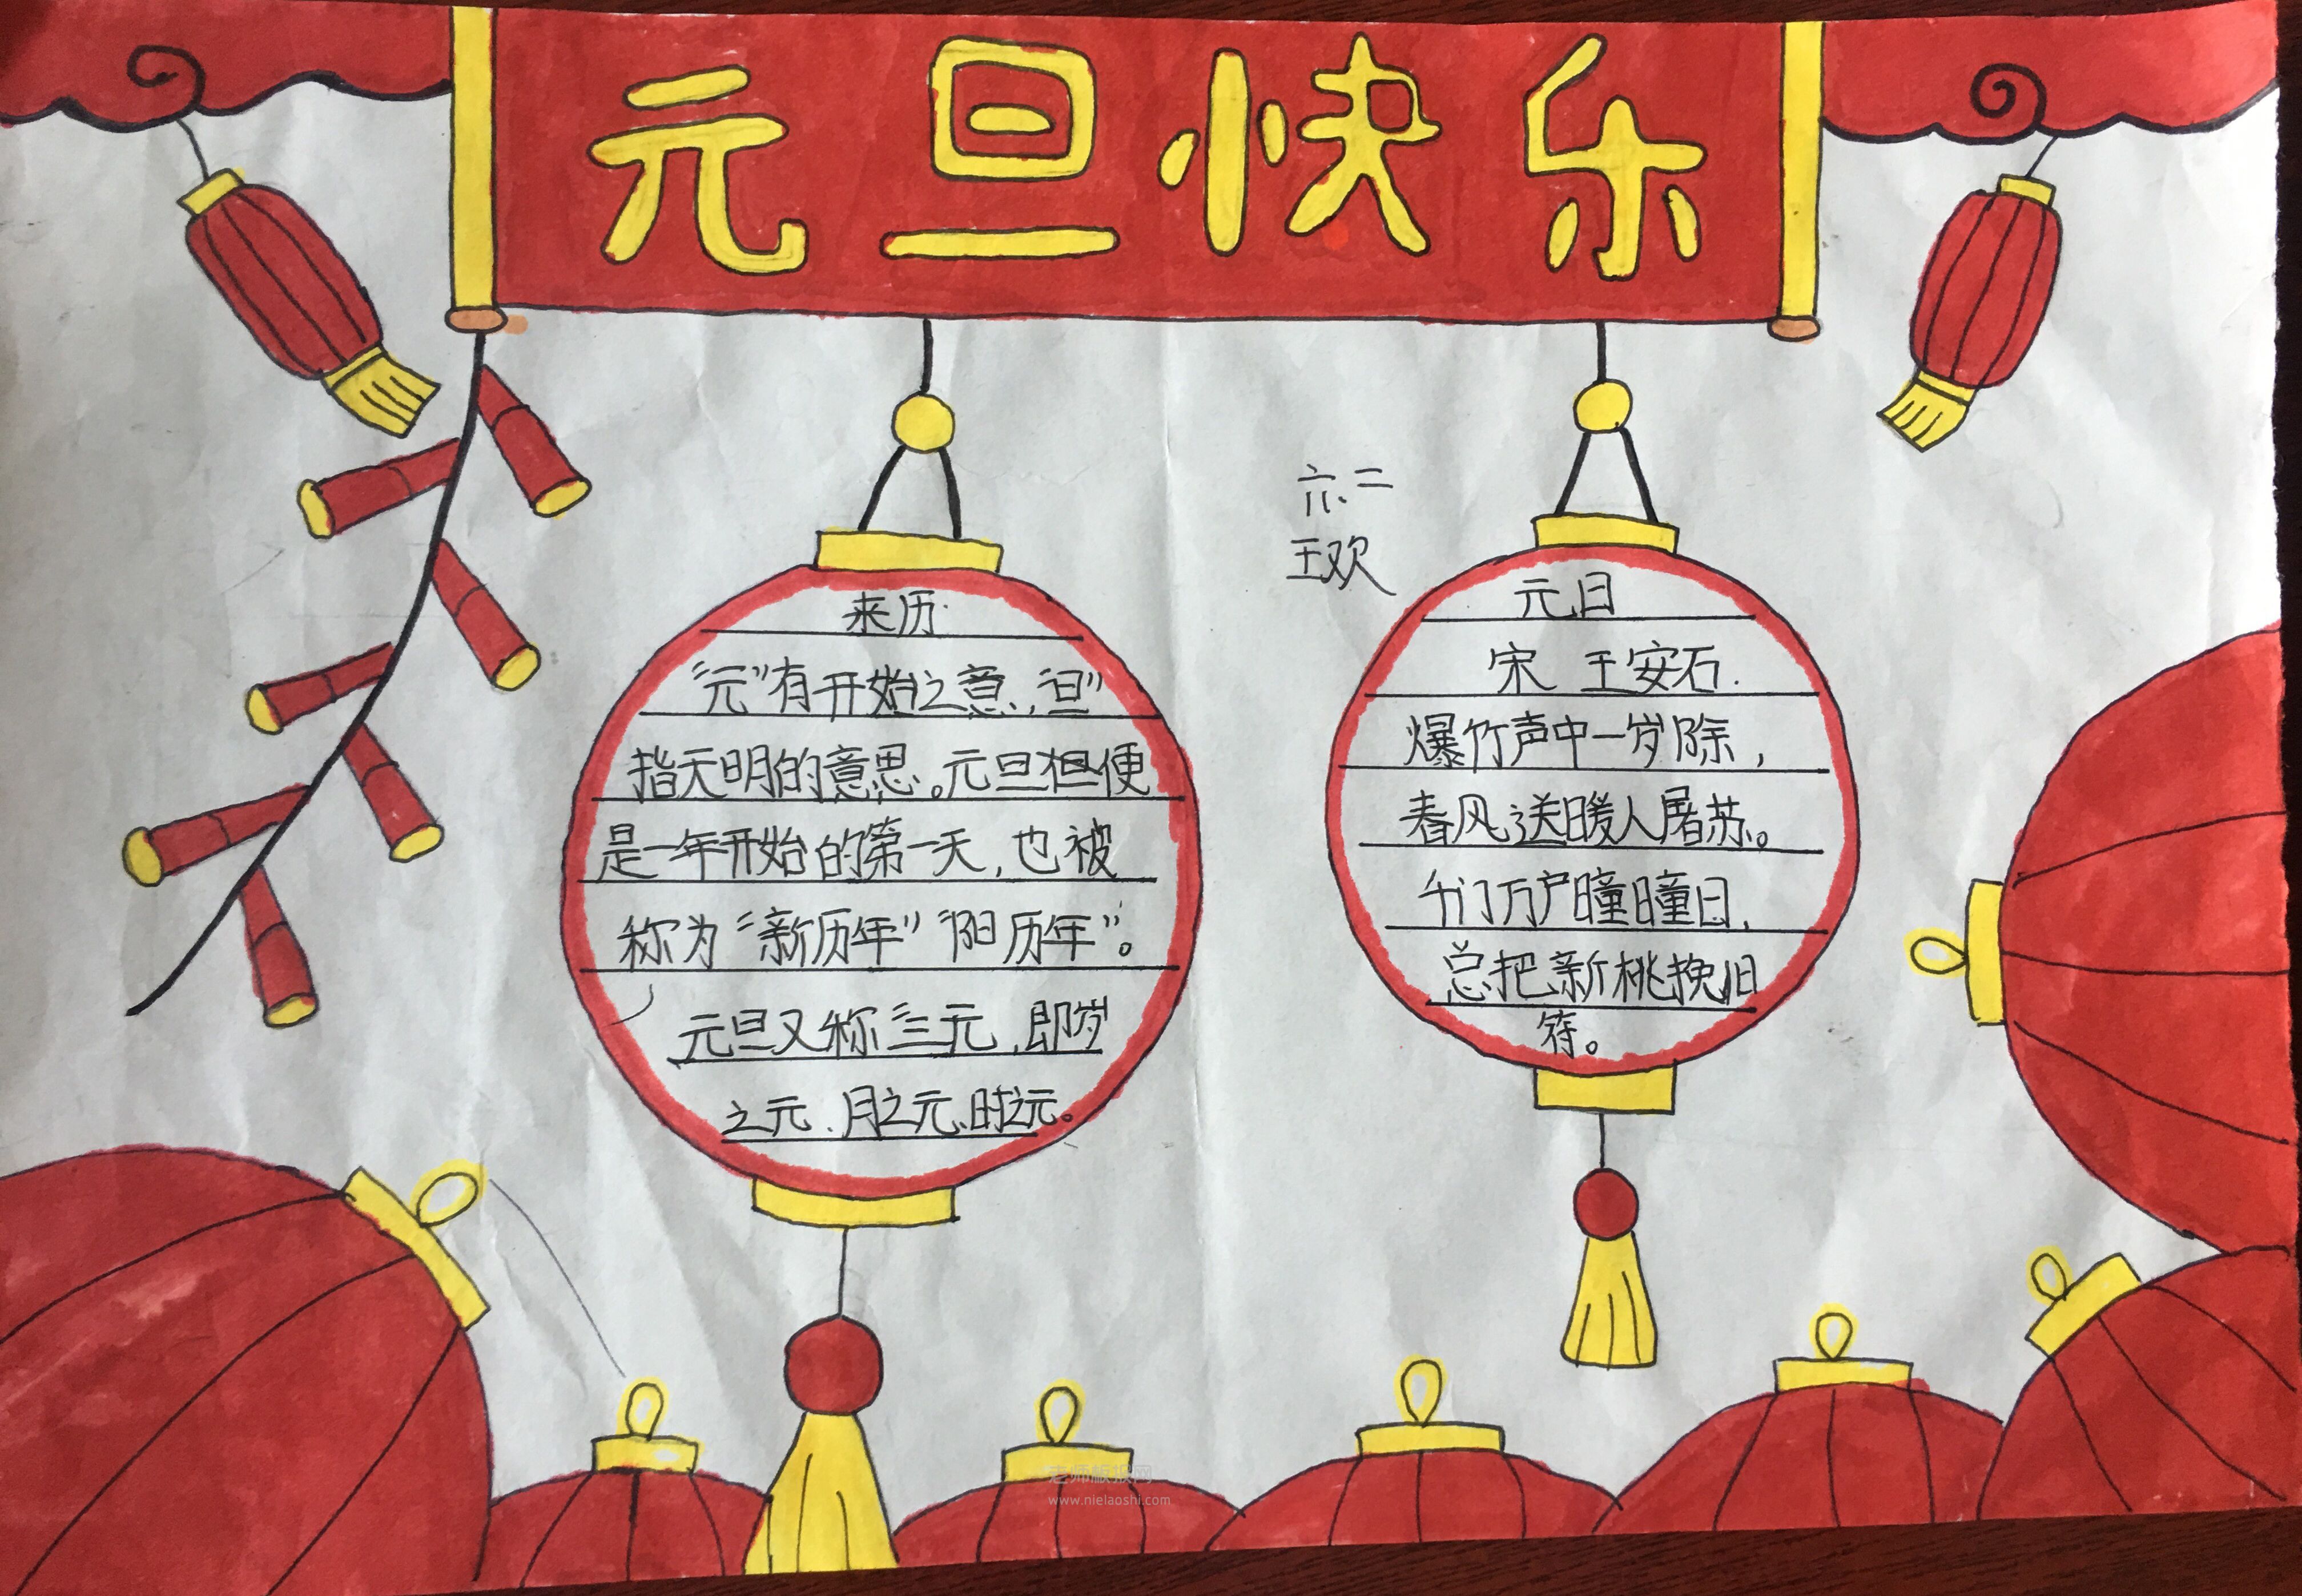 元旦快乐
六.二
王欢
来历
“元”有开始之意，“旦”
指天明的意思。元旦便
是一年开始的第一天，也被
称为“新历年”“阳历年”。
元旦又称“三元，即岁
之元、月之元、时之元。
元日
宋 王安石.
爆竹声中一岁除，
春风送暖人屠苏。
千门万户瞳瞳日，
总把新桃挽旧
符。
老师板报网
www.nielaoshi.com